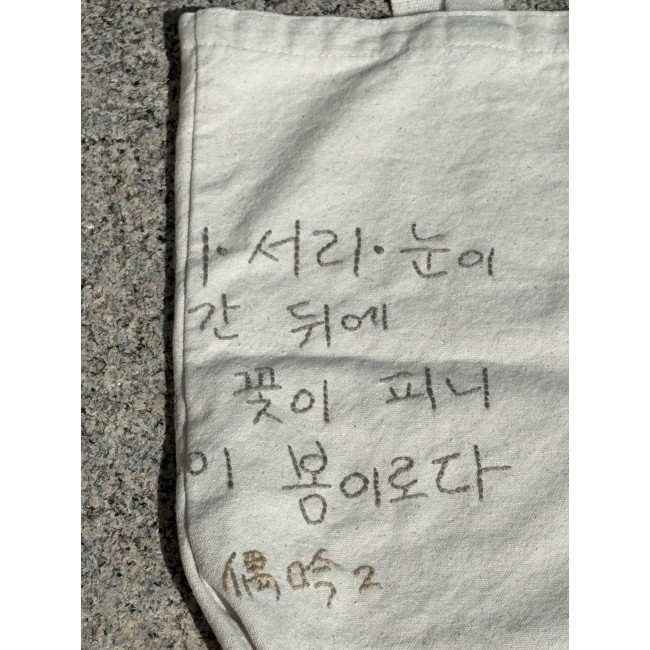 · 서리 · 눈이
간 뒤에
꽃이 피니
이 봄이로다
偶吟 2